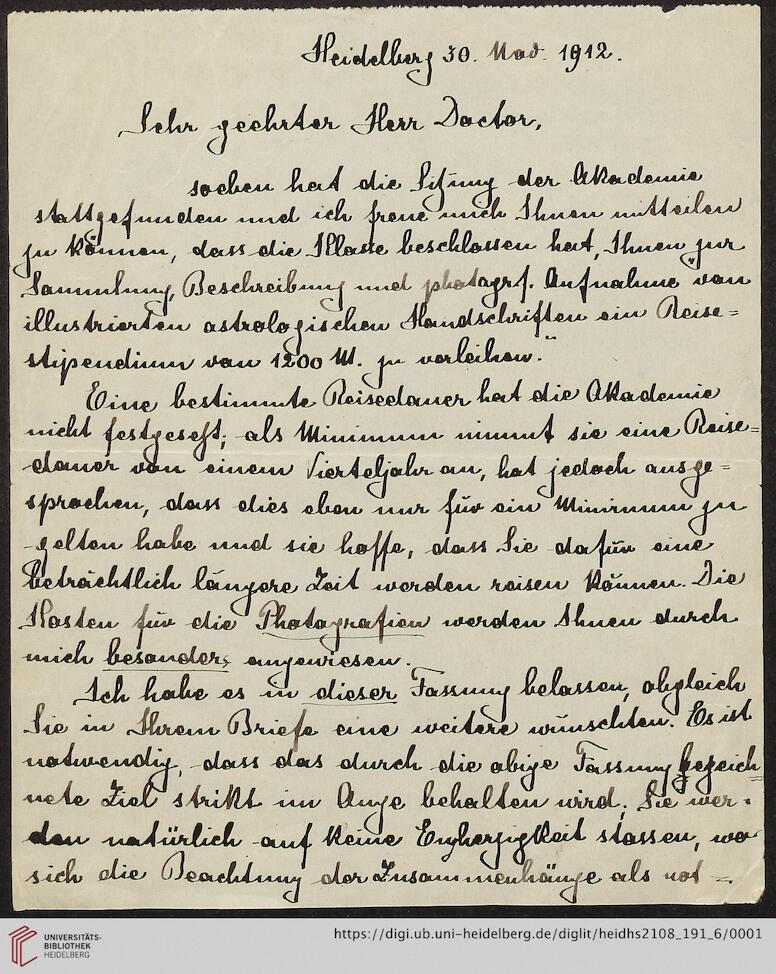 Heidelberg 30. Nov. 1912.
Sehr geehrter Herr Doctor,
soeben hat die Sitzung der Akademie
stattgefunden und ich freue mich Ihnen mitteilen
zu können, dass die Klasse beschlossen hat, Ihnen „zur
Sammlung, Beschreibung und photogrf. Aufnahme von
illustrierten astrologischen Handschriften ein Reise=
stipendium von 1200 M. zu verleihen."
Eine bestimmte Reisedauer hat die Akademie
nicht festgesetzt; als Minimum nimmt sie eine Reise=
dauer von einem Vierteljahr an, hat jedoch ausge=
sprochen, dass dies eben nur für ein Minimum zu
gelten habe und sie hoffe, dass Sie dafür eine
beträchtlich längere Zeit werden reisen können. Die
Kosten für die Photografien werden Ihnen durch
mich besonders angewiesen.
Ich habe es in dieser Fassung belassen, obgleich
Sie in Ihrem Briefe eine weitere wünschten. Es ist
notwendig, dass das durch die obige Fassung bezeich
nete Ziel strikt im Auge behalten wird; Sie wer=
den natürlich auf keine Engherzigkeit stossen, wo
sich die Beachtung der Zusammenhänge als not=
UNIVERSITÄTS-
BIBLIOTHEK
HEIDELBERG
https://digi.ub.uni-heidelberg.de/diglit/heidhs2108_191_6/0001